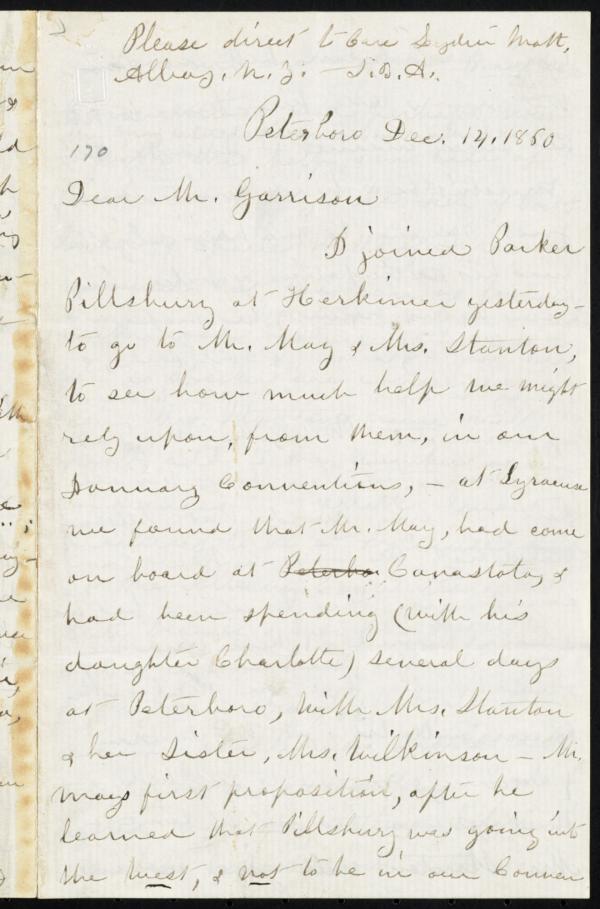 Please direct to Care Lydia Mott,
Albany. N. Y. — S. B. A.
Peterboro Dec. 14, 1860
170
Dear Mr. Garrison
I joined Parker
Pillsbury at Herkimer yesterday -
to go to Mr. May & Mrs. Stanton,
to see how much help we might
rely upon, from them, in our
January Conventions, - at Syracuse
we found that Mr. May, had come
on board at Peterbo Canastota, &
had been spending (with his
daughter Charlotte) several days
at Peterboro, with Mrs. Stanton
& her sister, Mrs. Wilkinson - Mr.
Mays first proposition, after he
learned that Pillsbury was going into
the West, & not to be in our Conven